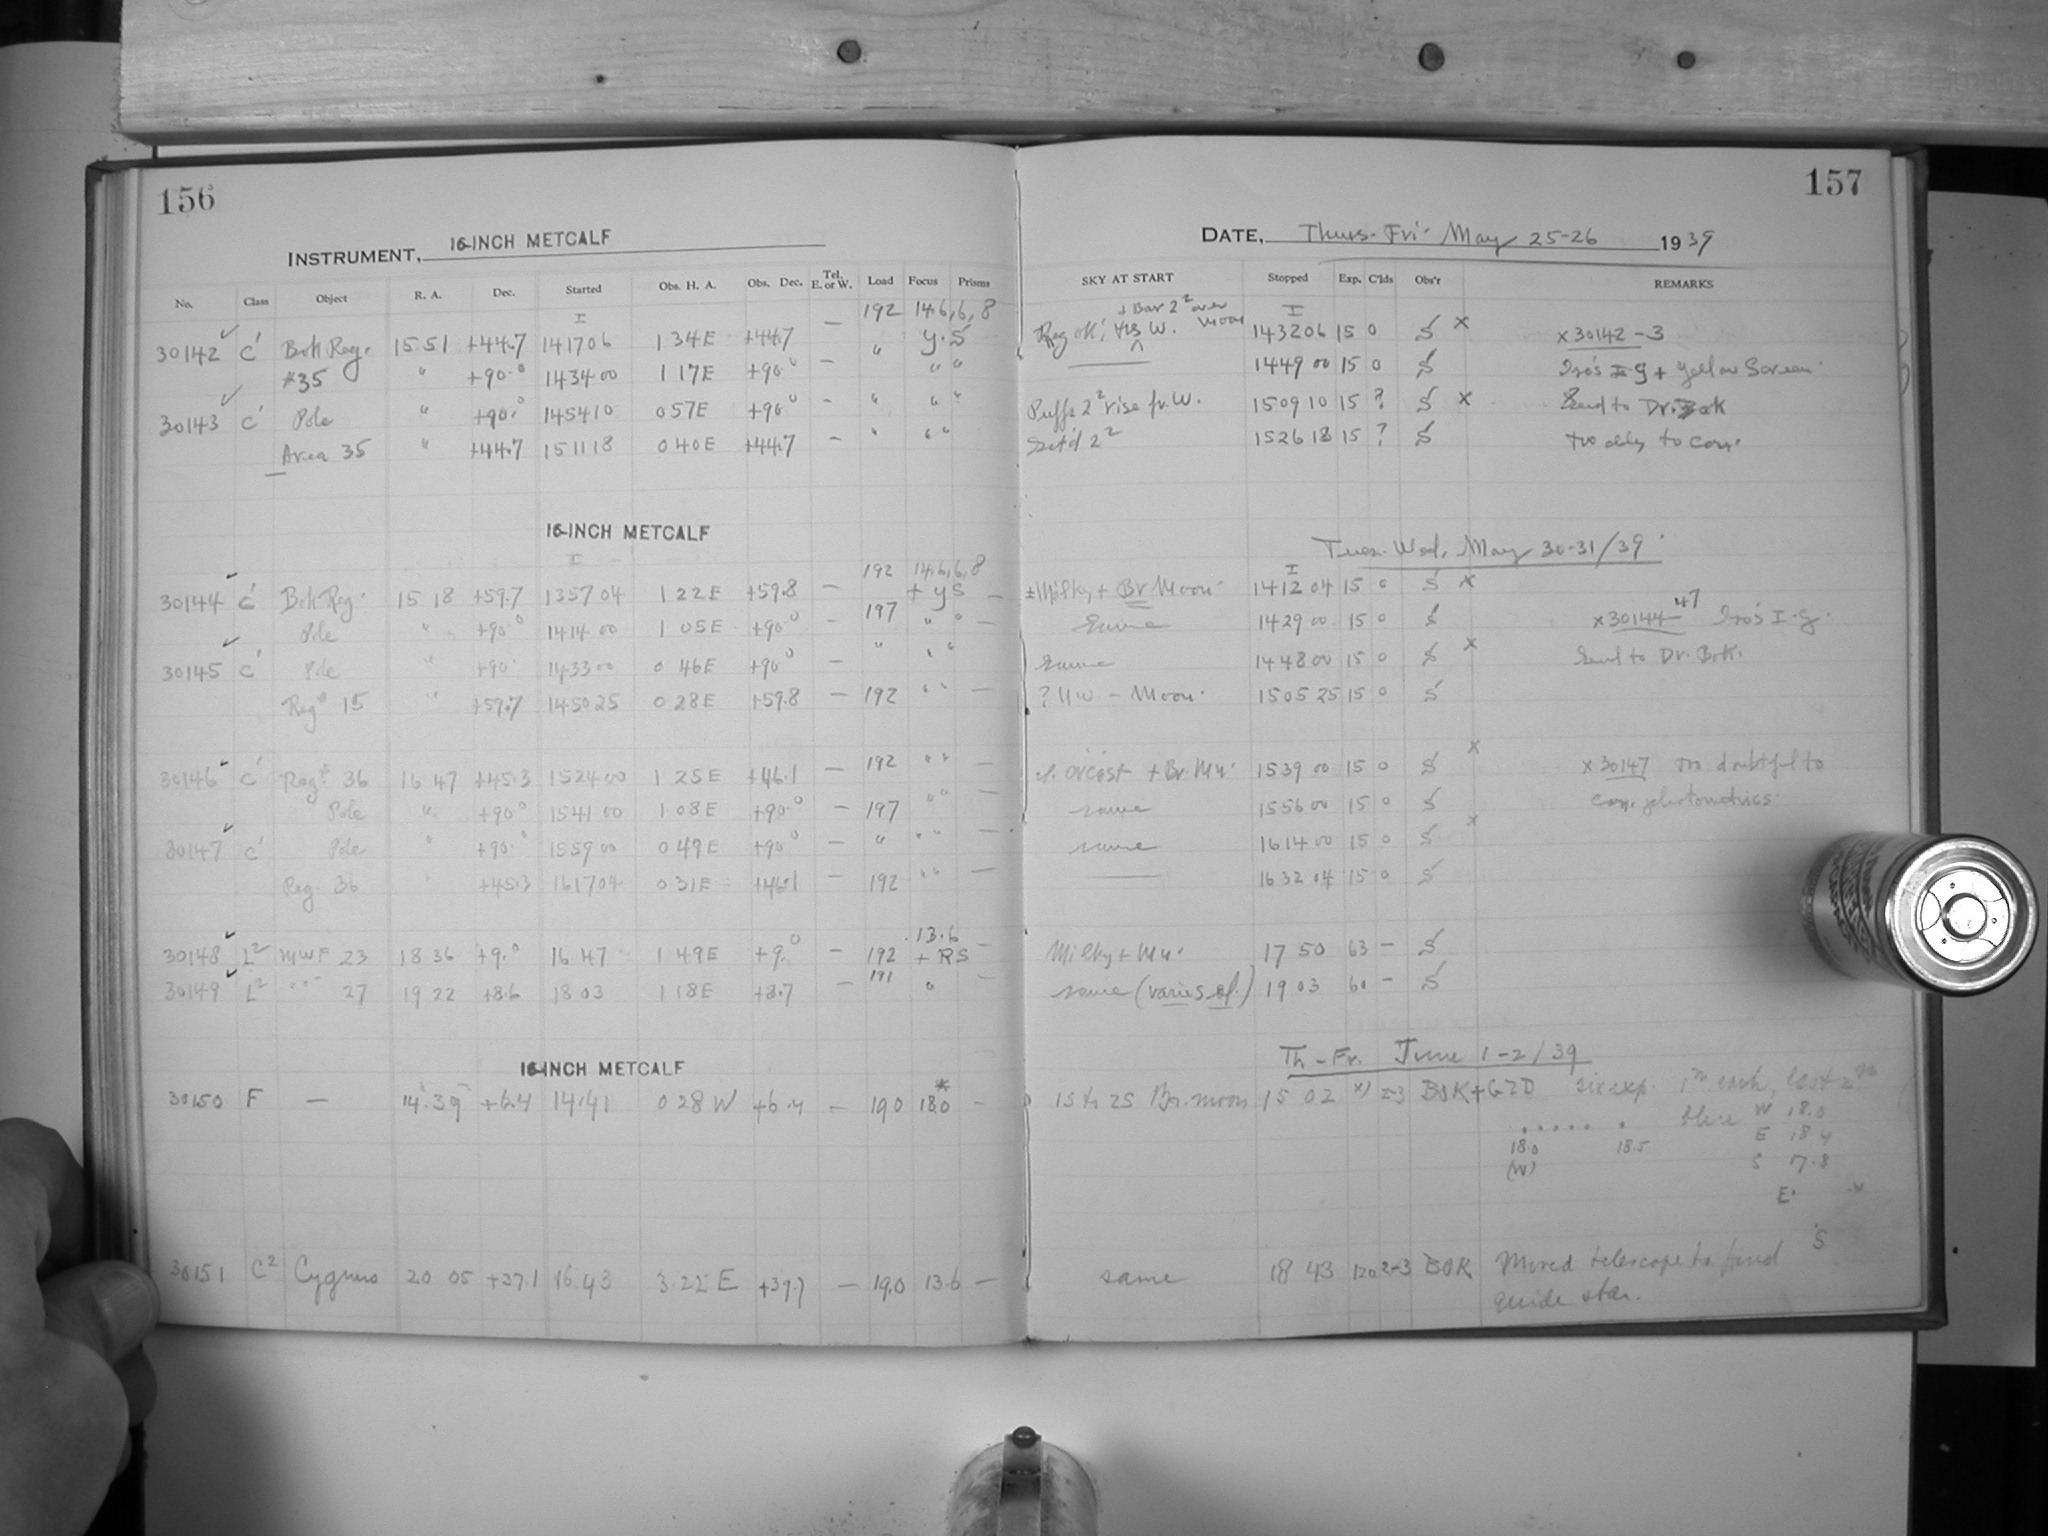 156
INSTRUMENT, 16-INCH METCALF
No. Class Object R. A. Dec. Started Obs. H. A. Obs. Dec. Tel. E. or W. Load Focus Prisms
I 192 14.6,6,8
30142 C' Bok Reg. 15 51 +44.7 141706 1 34E +44.7 — " Y.S
#35 " +90.0 143400 1 17E +90.0 — " "
30143 C' Pole " +90.0 145410 0 57E +90.0 — " " "
Area 35 " +44.7 151118 0 40E +44.7 — " " "
16-INCH METCALF
I 192 14.6,6,8
30144 C' Bok Reg. 15 18 +59.7 135704 1 22E +59.8 — + YS —
Pole " +90.0 141400 1 05E +90.0 — 197 " "
30145 C' Pole " +90. 143300 0 46E +90.0 — " " "
Reg# 15 " +59.7 145025 0 28E +59.8 — 192 " " —
30146 C' Reg# 36 16 47 +45.3 152400 1 25E +46.1 192 " " —
Pole " +90.0 154100 1 08E +90.0 — 197 " " —
30147 C' Pole " +90. 155900 0 49E +90.0 — " " " —
Reg. 36 " +45.3 161704 0 31E +46.1 — 192 " " —
30148 L2 MWF 23 18 36 +9.0 16 47 1 49E +9.0 — 192 13.6 + RS —
30149 L2 " " 27 19 22 +8.6 18 03 1 18E +8.7 — 191 " —
16-INCH METCALF
30150 F — 14.39 +6.4 14.41 0 28 W +6.4 — 19.0 18.0 * —
30151 C2 Cygnus 20 05 +37.1 16.43 3.22 E +39.7 — 19.0 13.6 —
157
DATE, Thurs-Fri. May 25-26 1939
SKY AT START Stopped Exp. C'lds Obs'r REMARKS
+ Bar 2² over Moon I
Reg OK, W. 143206 15 0 S x x30142-3
— 144900 15 0 S I-G + Yellow Screen
Puffs 2² rise fr. W. 150910 15 ? S x Send to Dr. Bok
2² 152618 15 ? S too cldy to
Tues. Wed. May 30-31/39
I
±Milky + Br. Moon 141204 15 0 S x
Same 142900 15 0 S x30144-47 I-G.
Same 144800 15 0 S x Send to Dr. Bok.
? - Moon 150525 15 0 S
+ Br. Mn. 153900 15 0 S x x30147 too doubtful to
same 155600 15 0 S photometrics
same 161400 15 0 S x
— 163204 15 0 S
Milky + Mn. 17 50 63 — S
same (varies) 19 03 60 — S
Th-Fr. June 1-2/39
1S to 2S Br. moon 15 02 x) 2-3 BOK+GZD six exp. 1m each, last 2m
blue W 18.0
..... . E 18.4
18.0 18.5 S 17.8
(W)
E. W
S
same 18 43 120 2-3 BOK Moved telescope to find
guide star.